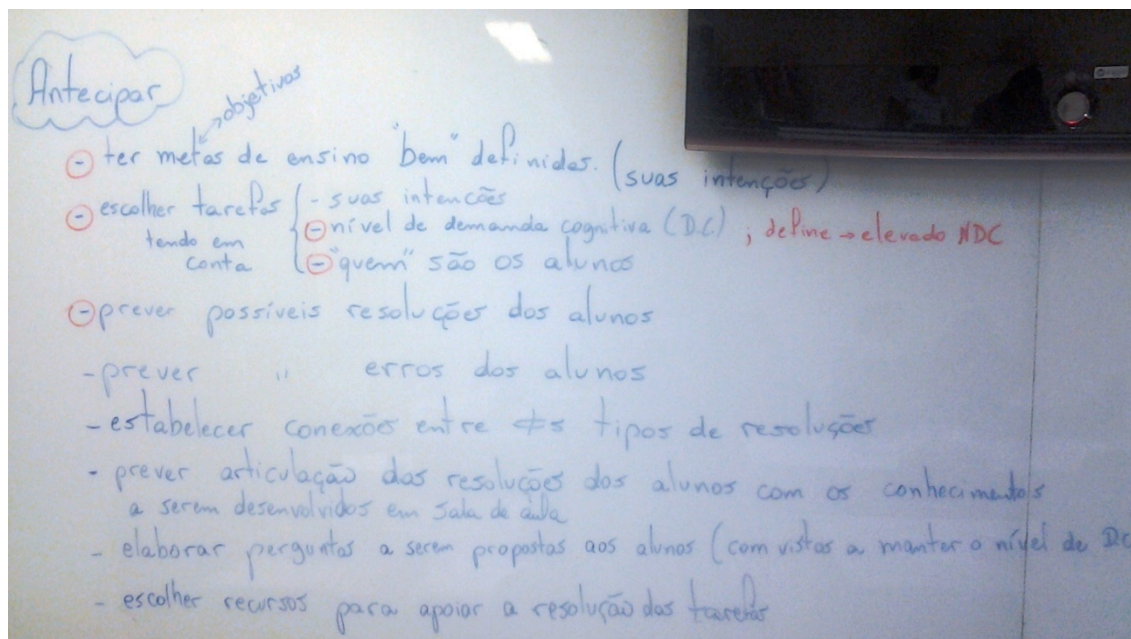 Antecipar
→ objetivos
- ter metas de ensino "bem" definidas. (suas intenções)
- escolher tarefas { - suas intenções
tendo em conta
- nível de demanda cognitiva (DC) ; define → elevado NDC
- "quem" são os alunos
- prever possíveis resoluções dos alunos
- prever " erros dos alunos
- estabelecer conexões entre ≠s tipos de resoluções
- prever articulação das resoluções dos alunos com os conhecimentos
a serem desenvolvidos em sala de aula
- elaborar perguntas a serem propostas aos alunos (com vistas a manter o nível de DC
- escolher recursos para apoiar a resolução das tarefas